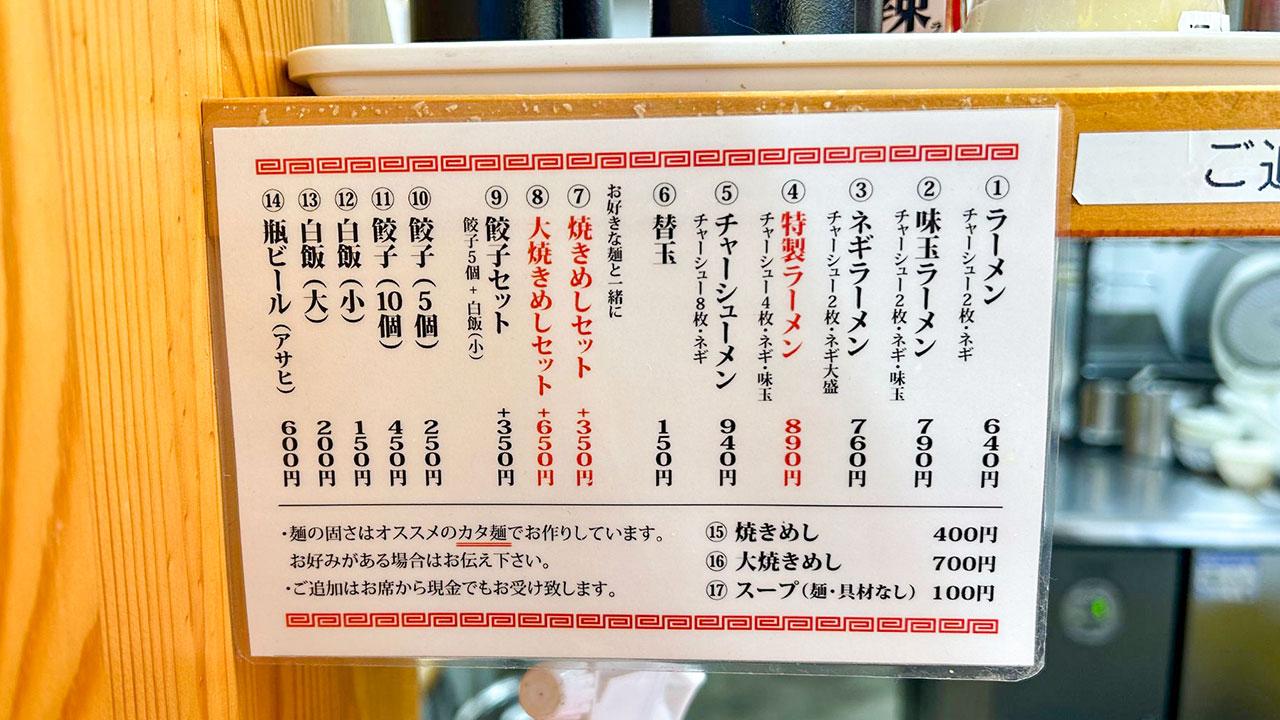 辣
ラ
ご
① ラーメン 640円
チャーシュー2枚・ネギ
② 味玉ラーメン 790円
チャーシュー2枚・ネギ・味玉
③ ネギラーメン 760円
チャーシュー2枚・ネギ大盛
④ 特製ラーメン 890円
チャーシュー4枚・ネギ・味玉
⑤ チャーシューメン 940円
チャーシュー8枚・ネギ
⑥ 替玉 150円
お好きな麺と一緒に
⑦ 焼きめしセット +350円
⑧ 大焼きめしセット +650円
⑨ 餃子セット +350円
餃子5個+白飯(小)
⑩ 餃子(5個) 250円
⑪ 餃子(10個) 450円
⑫ 白飯(小) 150円
⑬ 白飯(大) 200円
⑭ 瓶ビール(アサヒ) 600円
・麺の固さはオススメのカタ麺でお作りしています。
お好みがある場合はお伝え下さい。
・ご追加はお席から現金でもお受け致します。
⑮ 焼きめし 400円
⑯ 大焼きめし 700円
⑰ スープ(麺・具材なし) 100円